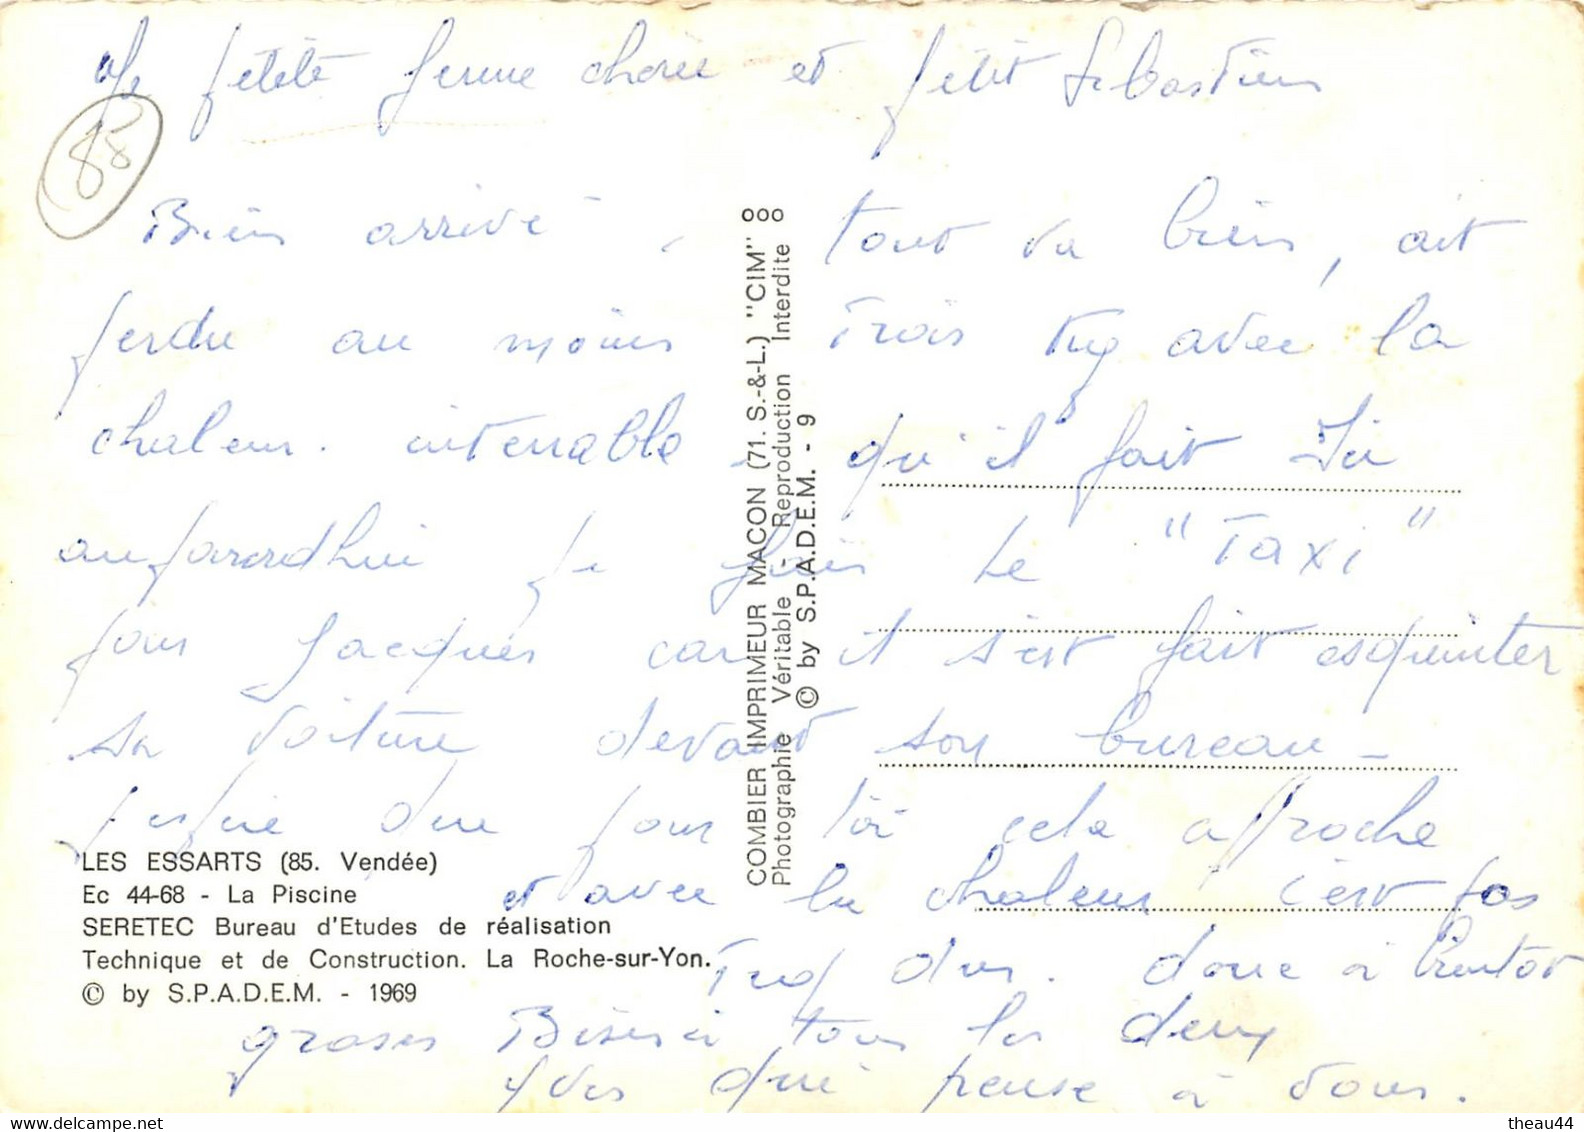 petite femme chérie et petit Sebastien
85
Bien arrivé, tout va bien, ait
perdu au moins trois kg avec la
chaleur. intenable qu'il fait Ici
aujourd'hui je fais le "Taxi"
pour Jacques car il s'est fait esquinter
sa voiture devant son bureau -
que pour toi cela approche
et avec la chaleur c'est pas
trop dur. donc à bientot
groses Bises à tous les deux
Yves qui pense à vous.
LES ESSARTS (85. Vendée)
Ec 44-68 - La Piscine
SERETEC Bureau d'Etudes de réalisation
Technique et de Construction. La Roche-sur-Yon.
© by S.P.A.D.E.M. - 1969
COMBIER IMPRIMEUR MACON (71. S.-&-L.) "CIM"
Photographie Véritable - Reproduction Interdite
© by S.P.A.D.E.M. - 9
theau44